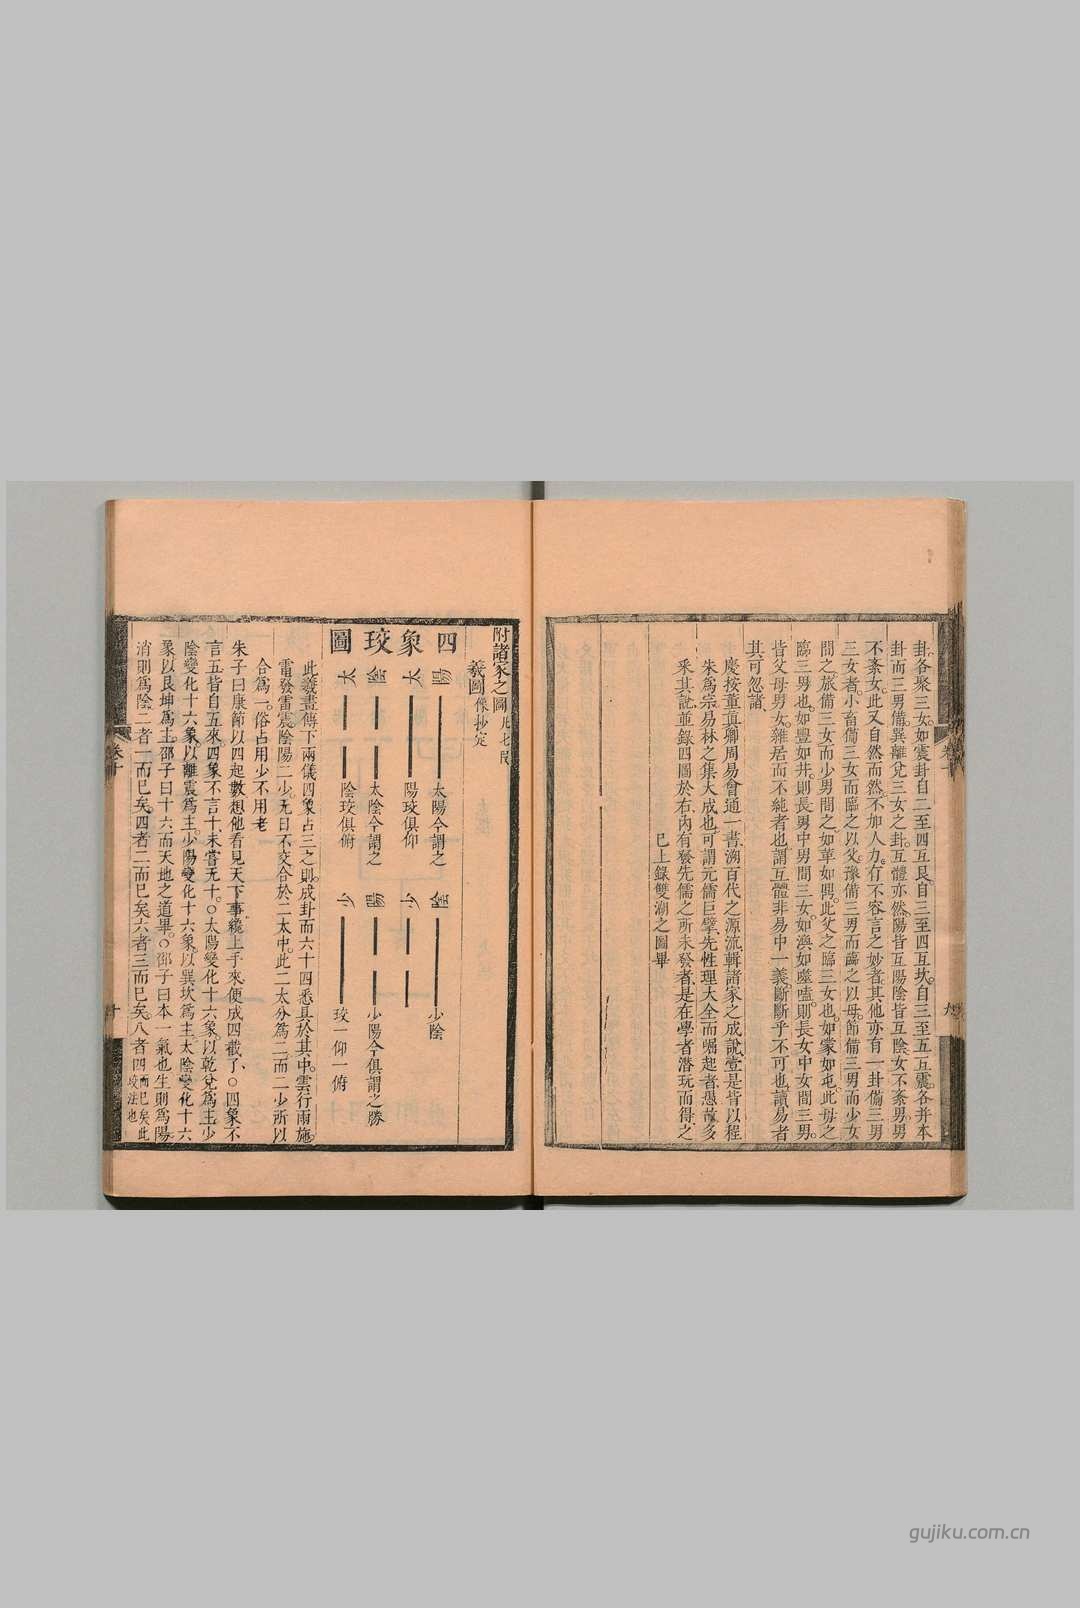 卦各聚三女如震卦自二至四互艮自三至四互坎自三至五互震各并本
卦而三男備巽離兌三女之卦互體亦然陽皆互陽陰皆互陰女不紊男男
不紊女此又自然而然不加人力有不容言之妙者其他亦有一卦備三男
三女者小畜備三女而臨之以父豫備三男而臨之以母節備三男而少女
間之旅備三女而少男間之如革如睽此父之臨三女也如蒙如屯此母之
臨三男也如豐如井則長男中男間三女如渙如噬嗑則長女中女間三男
皆父母男女雜居而不純者也謂互體非易中一義斷斷乎不可也讀易者
其可忽諸
慶按董真卿周易會通一書溯百代之源流輯諸家之成說壹是皆以程
朱為宗易林之集大成也可謂元儒巨擘先性理大全而崛起者愚故多
釆其說並錄四圖於右內有發先儒之所未發者是在學者潜玩而得之
已上錄雙湖之圖畢
卷十
九
附諸家之圖
羲圖
四象珓圖
太陽 太陽今謂之陽珓俱仰
太陰 太陰今謂之陰珓俱俯
少陰 少陰
少陽 少陽今俱謂之勝珓一仰一俯
此羲畫傳下兩儀四象占三之則成卦而六十四悉具於其中雲行雨施
電發雷震陰陽二少无日不交合於二太中此二太分為二而二少所以
合為一俗占用少不用老
朱子曰康節以四起數想他看見天下事纔上手來便成四截了○四象不
言五皆自五來四象不言十未嘗无十○太陽變化十六象以乾兌為主少
陰變化十六象以離震為主少陽變化十六象以巽坎為主太陰變化十六
象以艮坤為主邵子曰十六而天地之道畢○邵子曰本一氣也生則為陽
消則為陰二者一而已矣四者二而已矣六者三而已矣八者四而已矣此珓法也
卷十
十
gujiku.com.cn